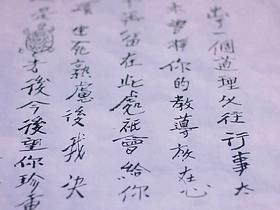 一個道理以往行事太
未曾將你的教導放在心
再留在此處祇會給你
生死熟慮後我決
是才後今後望你珍重